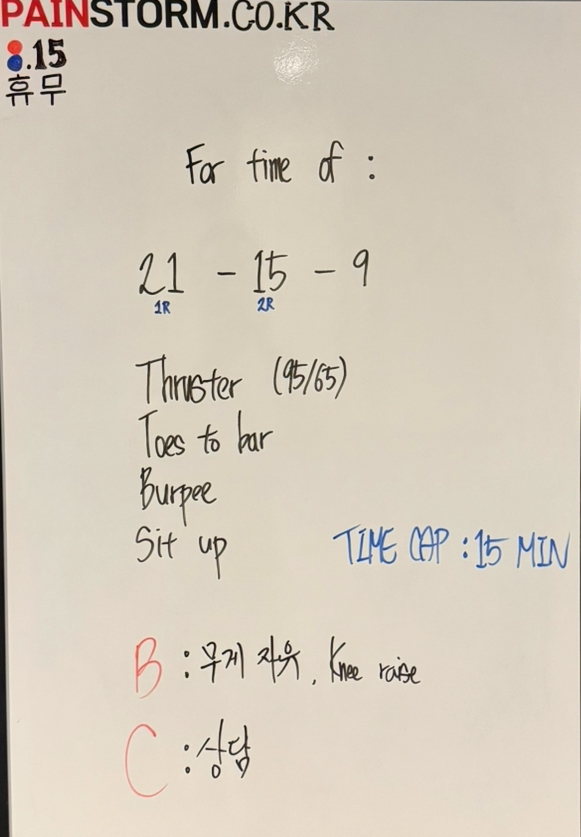 PAINSTORM.CO.KR
8.15
휴무
For time of :
21 - 15 - 9
1R 2R
Thruster (95/65)
Toes to bar
Burpee
Sit up
TIME CAP : 15 MIN
B : 무게 자유, Knee raise
C : 상담